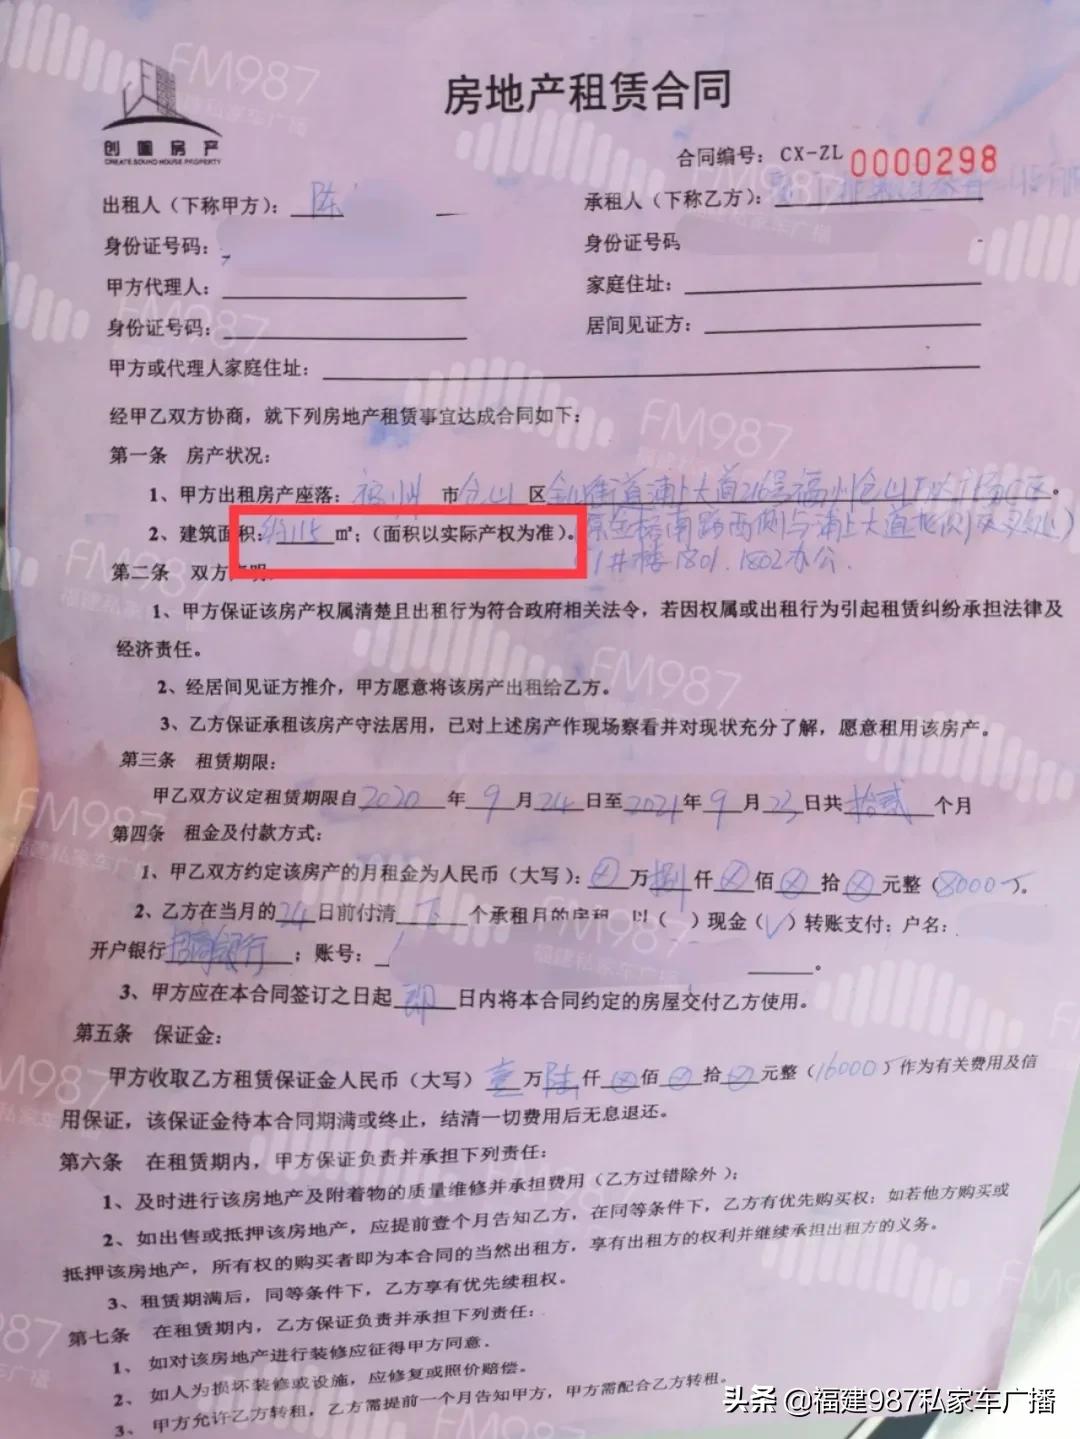 创凰房产
CREATE SOUND HOUSE PROPERTY
房地产租赁合同
合同编号：CX-ZL 0000298
出租人（下称甲方）：陈
承租人（下称乙方）：
身份证号码：
身份证号码
甲方代理人：
家庭住址：
身份证号码：
居间见证方：
甲方或代理人家庭住址：
经甲乙双方协商，就下列房地产租赁事宜达成合同如下：
第一条 房产状况：
1、甲方出租房产座落：福州市仓山区金山街道浦上大道216号福州仓山万达广场C区。
2、建筑面积：约115㎡；（面积以实际产权为准）。
金榕南路西侧与浦上大道北侧交叉处）
1#楼1801.1802办公.
第二条 双方声明
1、甲方保证该房产权属清楚且出租行为符合政府相关法令，若因权属或出租行为引起租赁纠纷承担法律及
经济责任。
2、经居间见证方推介，甲方愿意将该房产出租给乙方。
3、乙方保证承租该房产守法居用，已对上述房产作现场察看并对现状充分了解，愿意租用该房产。
第三条 租赁期限：
甲乙双方议定租赁期限自2020年9月24日至2021年9月23日共拾贰个月
第四条 租金及付款方式：
1、甲乙双方约定该房产的月租金为人民币（大写）：⊗万捌仟⊗佰⊗拾⊗元整（8000-）。
2、乙方在当月的24日前付清下个承租月的房租，以（ ）现金（√）转账支付：户名：
开户银行招商银行；账号：
3、甲方应在本合同签订之日起即日内将本合同约定的房屋交付乙方使用。
第五条 保证金：
甲方收取乙方租赁保证金人民币（大写）壹万陆仟⊗佰⊗拾⊗元整（16000）作为有关费用及信
用保证，该保证金待本合同期满或终止，结清一切费用后无息退还。
第六条 在租赁期内，甲方保证负责并承担下列责任：
1、及时进行该房地产及附着物的质量维修并承担费用（乙方过错除外）；
2、如出售或抵押该房地产，应提前壹个月告知乙方，在同等条件下，乙方有优先购买权；如若他方购买或
抵押该房地产，所有权的购买者即为本合同的当然出租方，享有出租方的权利并继续承担出租方的义务。
3、租赁期满后，同等条件下，乙方享有优先续租权。
第七条 在租赁期内，乙方保证负责并承担下列责任：
1、如对该房地产进行装修应征得甲方同意.
2、如人为损坏装修或设施，应修复或照价赔偿。
3、甲方允许乙方转租，乙方需提前一个月告知甲方，甲方需配合乙方转租。
FM987
福建私家车广播
头条 @福建987私家车广播